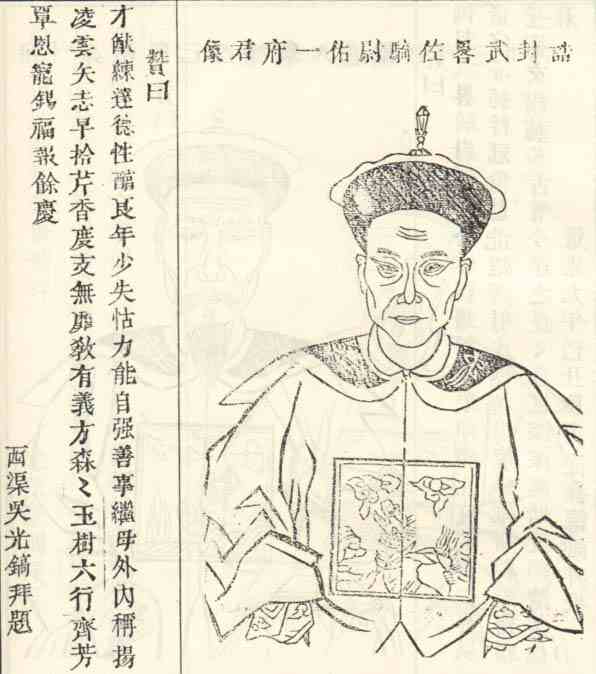 誥封武畧佐騎尉佑一府君像
贊曰
才猷練達德性醕良年少失怙力能自强善事繼母外內稱揚
凌雲矢志早拾芹香度支無靡敎有義方森〻玉樹六行齊芳
覃恩寵錫福報餘慶
西渠吳光鎬拜題